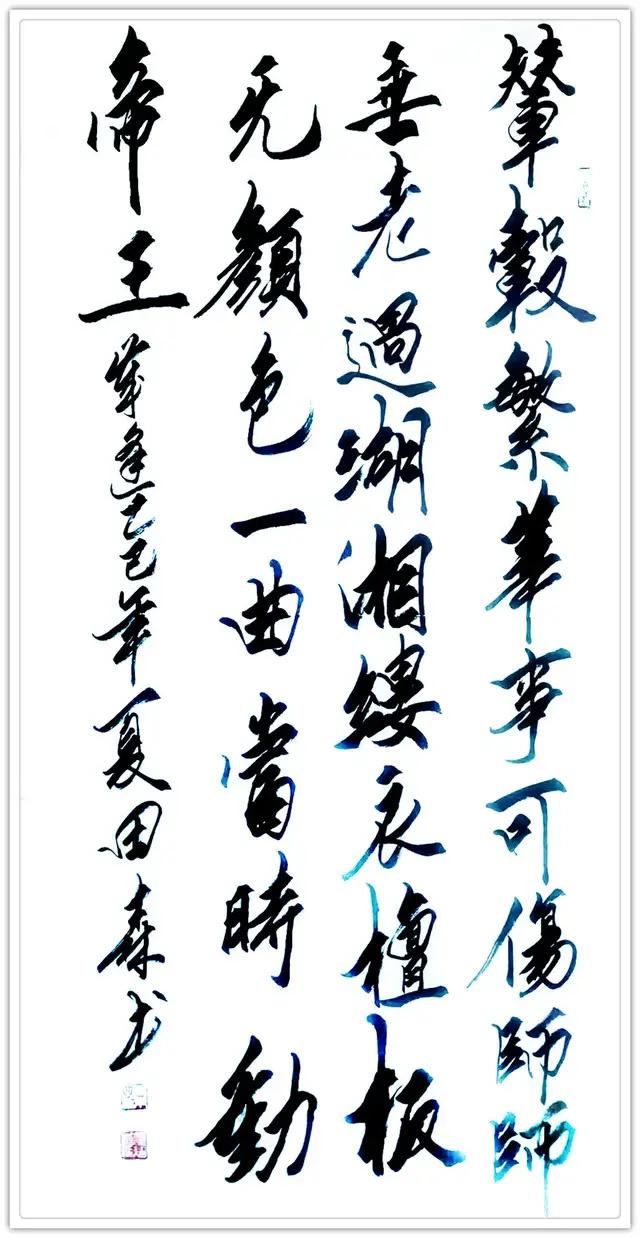 輦轂繁華事可傷師師
垂老過湖湘縷衣檀板
无顏色一曲當時動
帝王
歲逢己巳年夏田森书